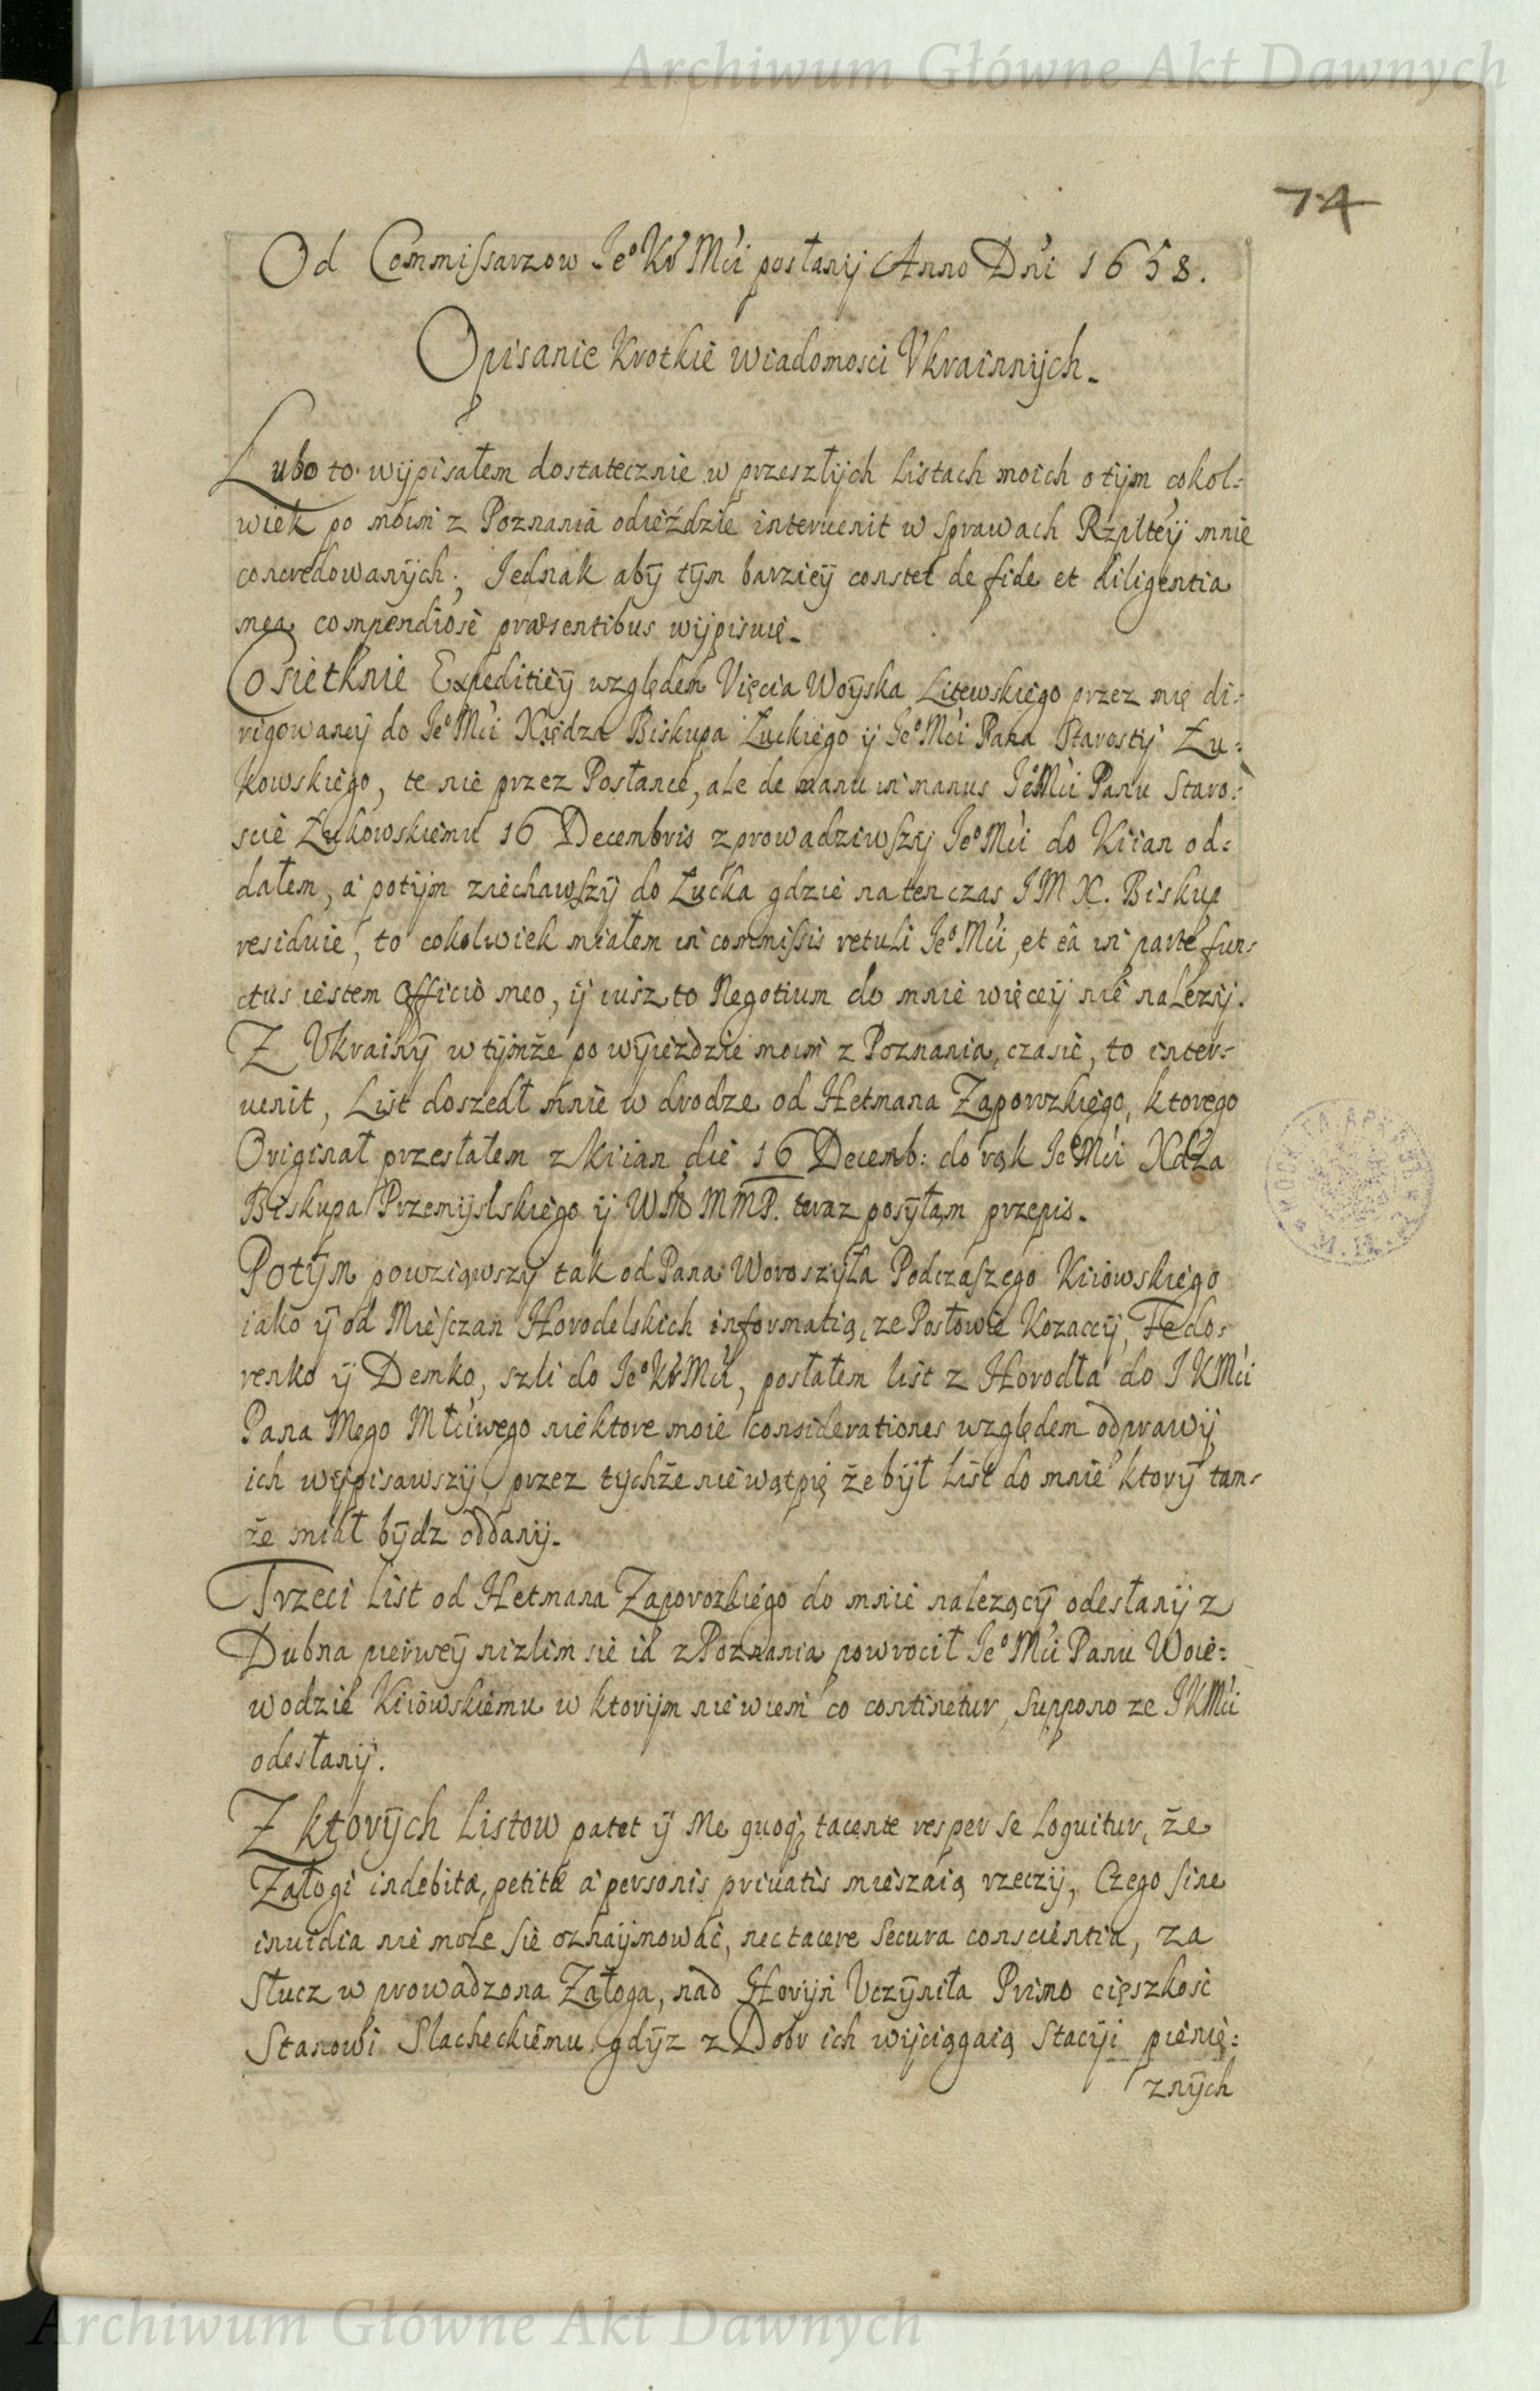 Archiwum Główne Akt Dawnych
74
Od Commissarzow Jeº Kr Mći posłany Anno Dńi 1658.
Opisanie Krotkie wiadomosci Vkrainnych.
Lubo to wypisałem dostatecznie w przeszłych Listach moich o tym cokol:
wiek po moim z Poznania odieździe interuenit w sprawach Rzpltey mnie
concredowanych; Jednak aby tym barziey constet de fide et diligentia
mea compendiose præsentibus wypisuię.
Co sie tknie Expeditiey względem Vięcia Woyska Litewskiego przez mię di:
rigowaney do Jeº Mći Xiędza Biskupa Łuckiego y Jeº Mći Pana Starosty Łu:
kowskiego, te nie przez Posłance, ale de manu in manus Jeº Mći Panu Staro:
scie Łukowskiemu 16 Decembris zprowadziwszy Jeº Mći do Kiian od:
dałem, a potym ziechawszy do Łucka gdzie na ten czas J M X. Biskup
residuie, to cokolwiek miałem in commissis retuli Jeº Mći, et eâ in parte fun:
ctus iestem Officio meo, y iusz to Negotium do mnie więcey nie nalezy.
Z Vkrainy w tymże po wyieździe moim z Poznania, czasie, to inter:
uenit, List doszedł mnie w drodze od Hetmana Zaporozkiego, ktorego
Originał przesłałem z Kiian die 16 Decemb: do rąk Jeº Mći Xdza
Biskupa Przemyslskiego y WM MMP. teraz posyłam przepis.
Potym powziąwszy tak od Pana Woroszyła Podczaszego Kiiowskiego
iako y od Miesczan Horodelskich informatią, ze Posłowie Kozaccy, Fedo:
renko y Demko, szli do Jeº Kr Mći, posłałem list z Horodła do J K Mći
Pana Mego Młciwego niektore moie considerationes względem odprawy
ich wypisawszy, przez tychże nie wątpię że był List do mnie ktory tam:
że miał bydz oddany.
Trzeci List od Hetmana Zaporozkiego do mnie nalezący odesłany z
Dubna pierwey nizlim sie ia z Poznania powrocił Jeº Mći Panu Woie:
wodzie Kiiowskiemu w ktorym nie wiem co continetur, suppono ze J K Mći
odesłany.
Z ktorych Listow patet y Me quoq; tacente res per se loquitur, że
Załogi indebitæ, petitæ a personis priuatis mieszaią rzeczy, Czego sine
inuidia nie może sie oznaymować, nec tacere secura conscientia, za
Słucz w prowadzona Załoga, nad Horyń Vczyniła Primo cięszkość
Stanowi Slacheckiemu, gdyz z Dobr ich wyciągaią Stacyi pienię:
znych
Archiwum Główne Akt Dawnych